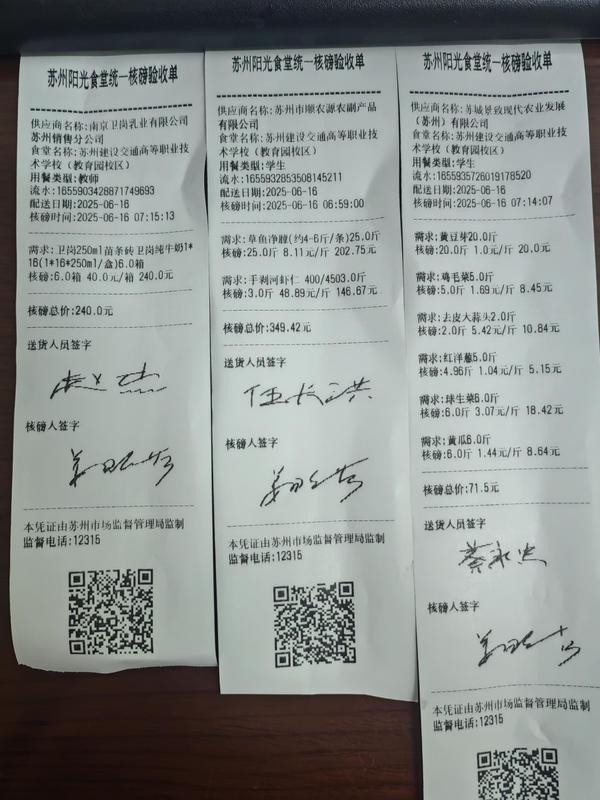 苏州阳光食堂统一核磅验收单
供应商名称:南京卫岗乳业有限公司
苏州销售分公司
食堂名称:苏州建设交通高等职业技
术学校(教育园校区)
用餐类型:教师
流水:1655903428871749693
配送日期:2025-06-16
核磅时间:2025-06-16 07:15:13
需求:卫岗250ml苗条砖卫岗纯牛奶1*
16(1*16*250ml/盒)6.0箱
核磅:6.0箱 40.0元/箱 240.0元
核磅总价:240.0元
送货人员签字
核磅人签字
本凭证由苏州市场监督管理局监制
监督电话:12315
苏州阳光食堂统一核磅验收单
供应商名称:苏州市顺农源农副产品
有限公司
食堂名称:苏州建设交通高等职业技
术学校(教育园校区)
用餐类型:学生
流水:1655932853508145211
配送日期:2025-06-16
核磅时间:2025-06-16 06:59:00
需求:草鱼净膛(约4-6斤/条)25.0斤
核磅:25.0斤 8.11元/斤 202.75元
需求:手剥河虾仁 400/4503.0斤
核磅:3.0斤 48.89元/斤 146.67元
核磅总价:349.42元
送货人员签字
核磅人签字
本凭证由苏州市场监督管理局监制
监督电话:12315
苏州阳光食堂统一核磅验收单
供应商名称:苏城景致现代农业发展
(苏州)有限公司
食堂名称:苏州建设交通高等职业技
术学校(教育园校区)
用餐类型:学生
流水:1655935726019178520
配送日期:2025-06-16
核磅时间:2025-06-16 07:14:07
需求:黄豆芽20.0斤
核磅:20.0斤 1.0元/斤 20.0元
需求:鸡毛菜5.0斤
核磅:5.0斤 1.69元/斤 8.45元
需求:去皮大蒜头2.0斤
核磅:2.0斤 5.42元/斤 10.84元
需求:红洋葱5.0斤
核磅:4.96斤 1.04元/斤 5.15元
需求:球生菜6.0斤
核磅:6.0斤 3.07元/斤 18.42元
需求:黄瓜6.0斤
核磅:6.0斤 1.44元/斤 8.64元
核磅总价:71.5元
送货人员签字
核磅人签字
本凭证由苏州市场监督管理局监制
监督电话:12315